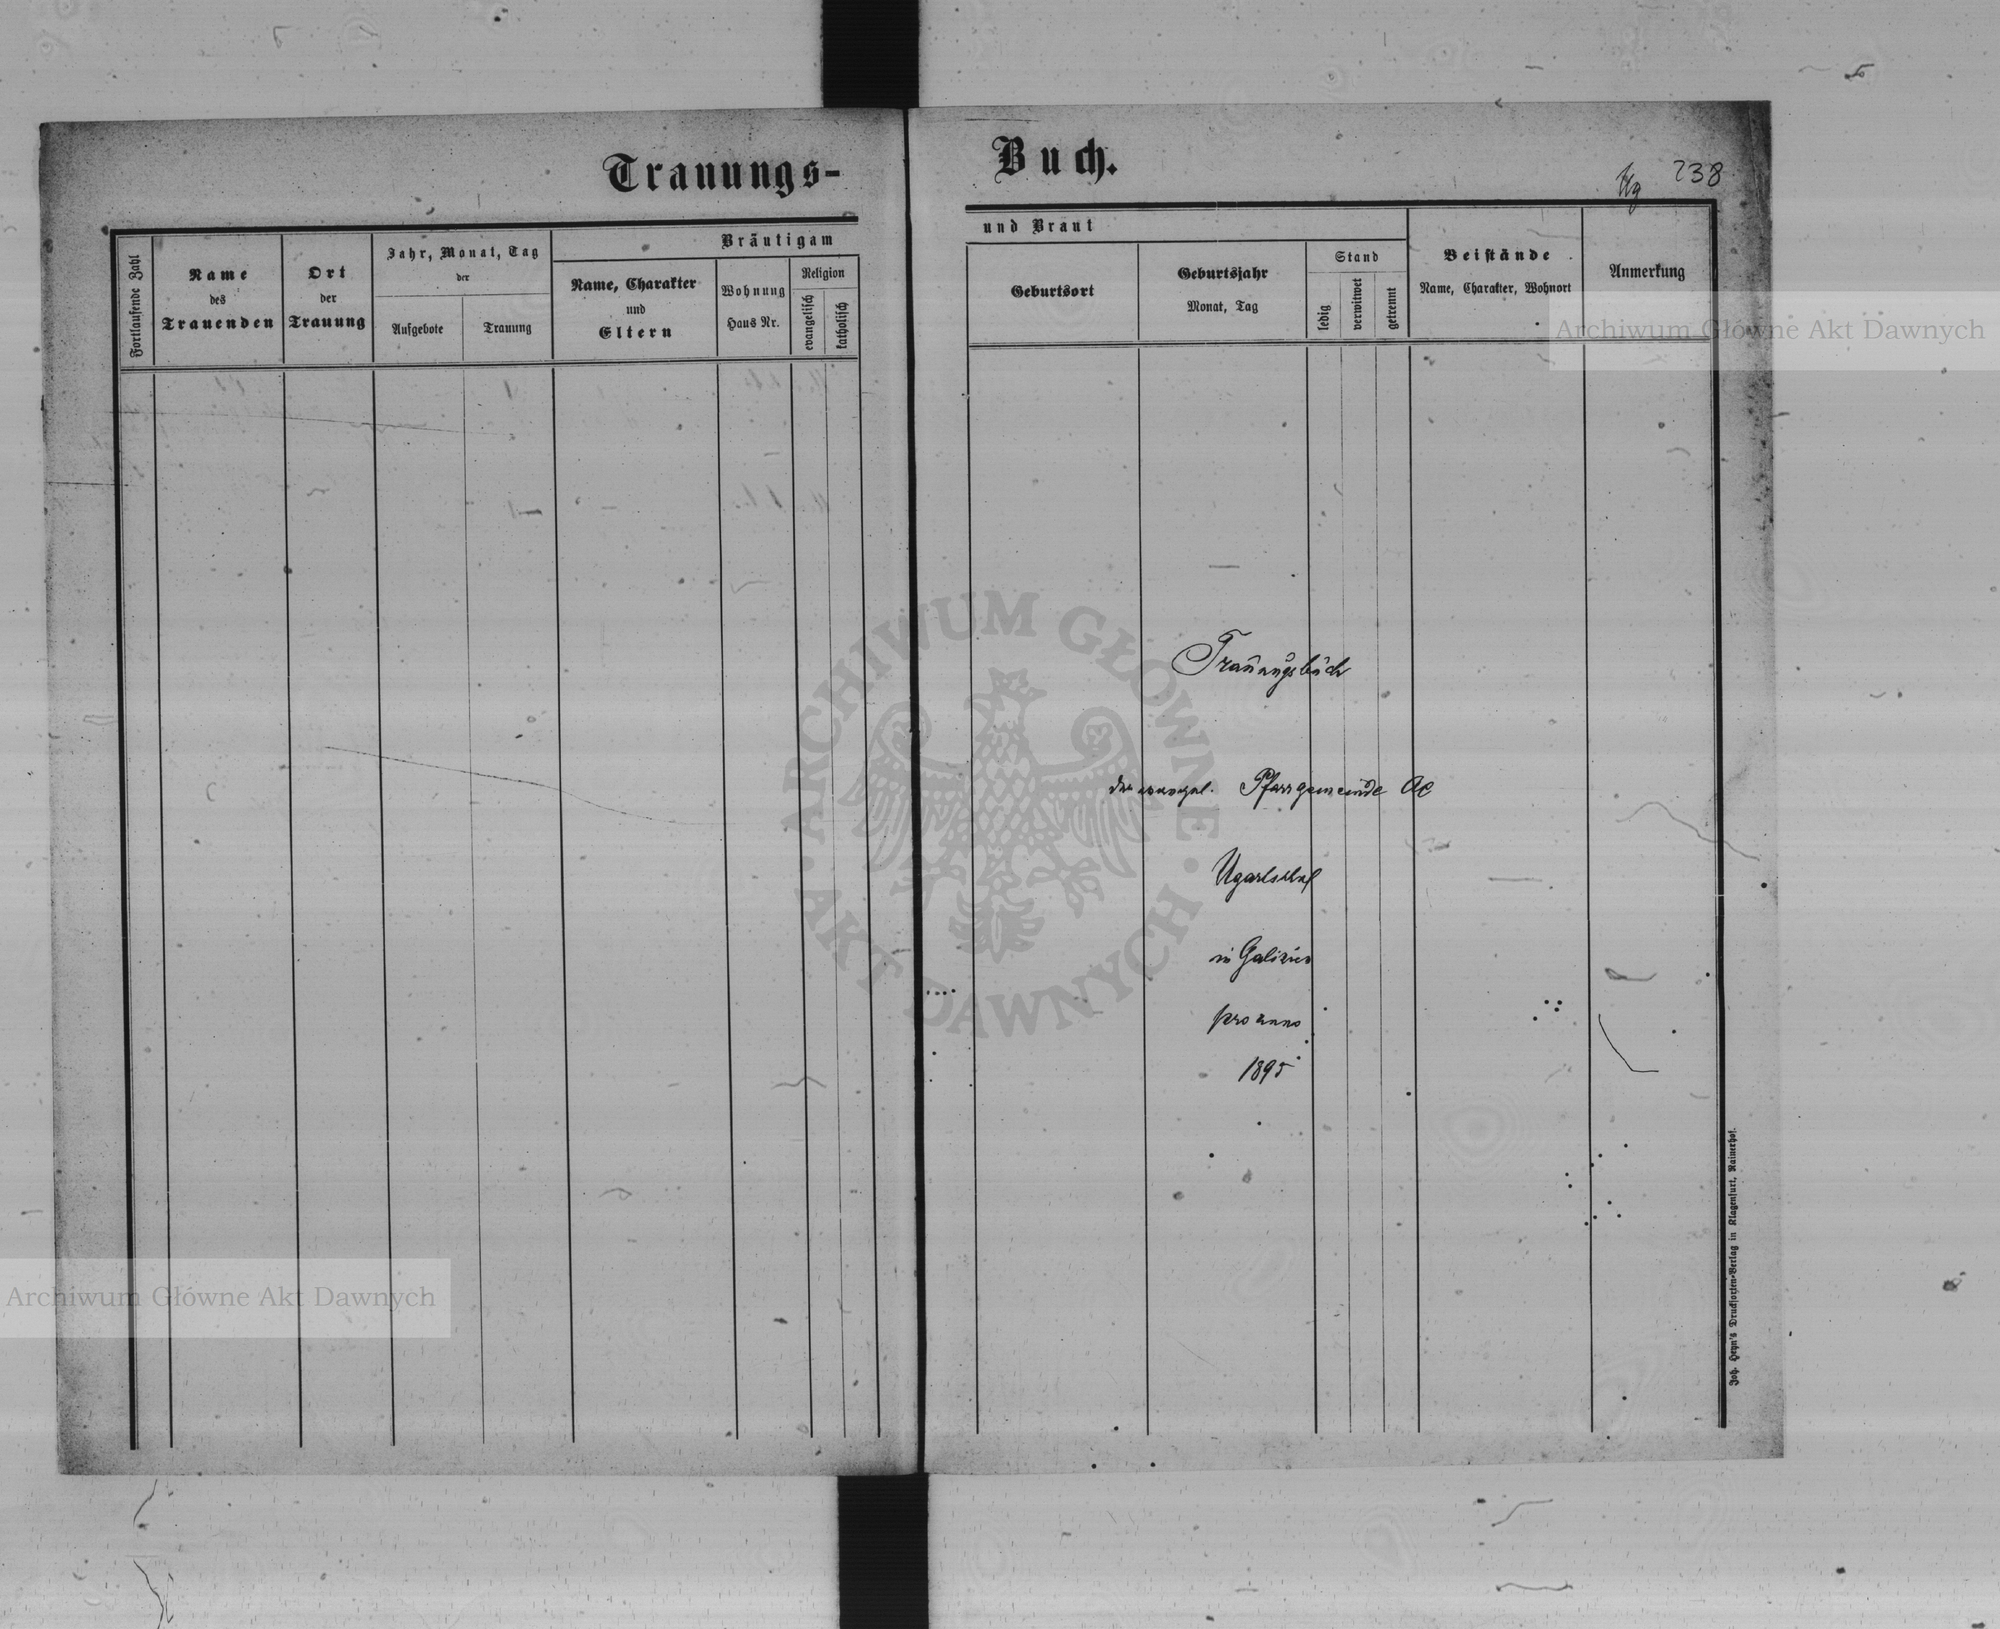 Trauungs-
Buch.
Ug 238
Fortlaufende Zahl
Name
des
Trauenden
Ort
der
Trauung
Jahr, Monat, Tag
der
Aufgebote
Trauung
Bräutigam
Name, Charakter
und
Eltern
Wohnung
Haus Nr.
Religion
evangelisch
katholisch
und Braut
Geburtsort
Geburtsjahr
Monat, Tag
Stand
ledig
verwitwet
getrennt
Beistände
Name, Charakter, Wohnort
Anmerkung
Archiwum Główne Akt Dawnych
Trauungsbuch
der evangel. Pfarrgemeinde AC
Ugartsthal
in Galizien
pro anno
1895
ARCHIWUM GŁÓWNE
AKT DAWNYCH
Archiwum Główne Akt Dawnych
Joh. Heyn's Drucksorten-Verlag in Klagenfurt, Rainerhof.